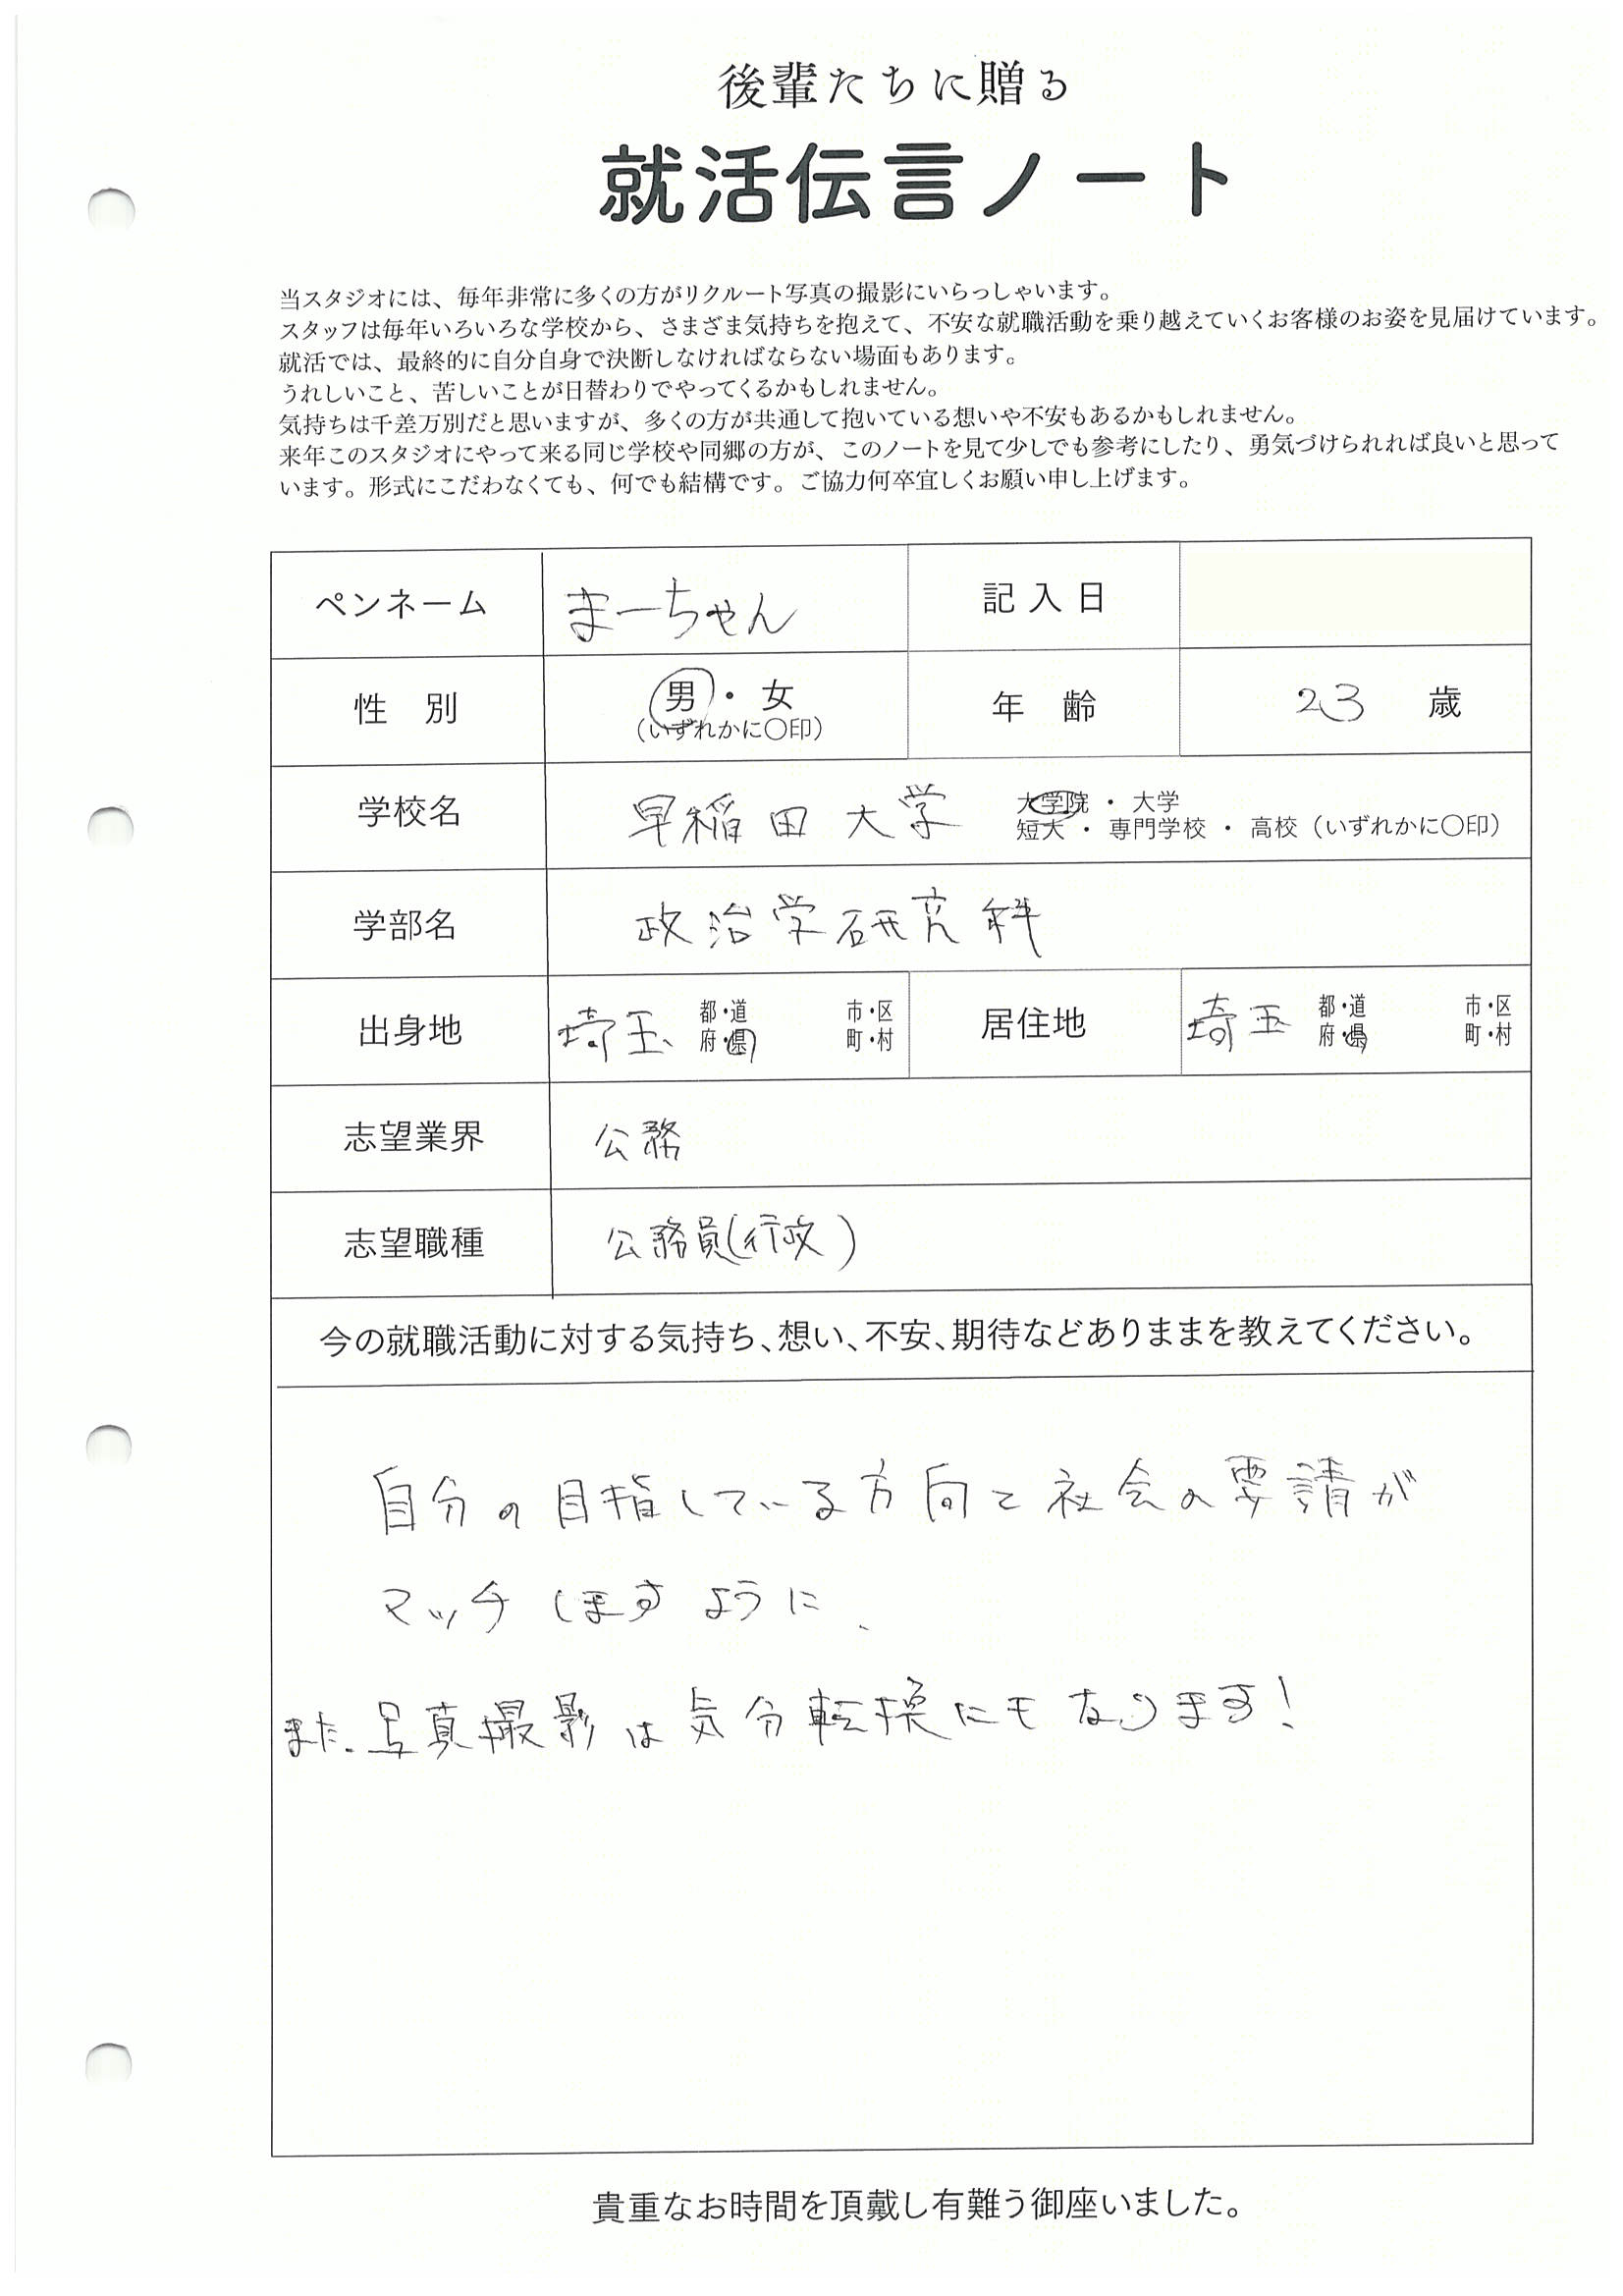 後輩たちに贈る
就活伝言ノート
当スタジオには、毎年非常に多くの方がリクルート写真の撮影にいらっしゃいます。
スタッフは毎年いろいろな学校から、さまざま気持ちを抱えて、不安な就職活動を乗り越えていくお客様のお姿を見届けています。
就活では、最終的に自分自身で決断しなければならない場面もあります。
うれしいこと、苦しいことが日替わりでやってくるかもしれません。
気持ちは千差万別だと思いますが、多くの方が共通して抱いている想いや不安もあるかもしれません。
来年このスタジオにやって来る同じ学校や同郷の方が、このノートを見て少しでも参考にしたり、勇気づけられれば良いと思って
います。形式にこだわなくても、何でも結構です。ご協力何卒宜しくお願い申し上げます。
ペンネーム まーちゃん 記入日
性別 男・女 年齢 23 歳
(いずれかに〇印)
学校名 早稲田大学 大学院・大学
短大・専門学校・高校(いずれかに〇印)
学部名 政治学研究科
出身地 埼玉 都・道 市・区 居住地 埼玉 都・道 市・区
府・県 町・村 府・県 町・村
志望業界 公務
志望職種 公務員(行政)
今の就職活動に対する気持ち、想い、不安、期待などありままを教えてください。
自分の目指している方向と社会の要請が
マッチしますように、
また、写真撮影は気分転換にもなります!
貴重なお時間を頂戴し有難う御座いました。